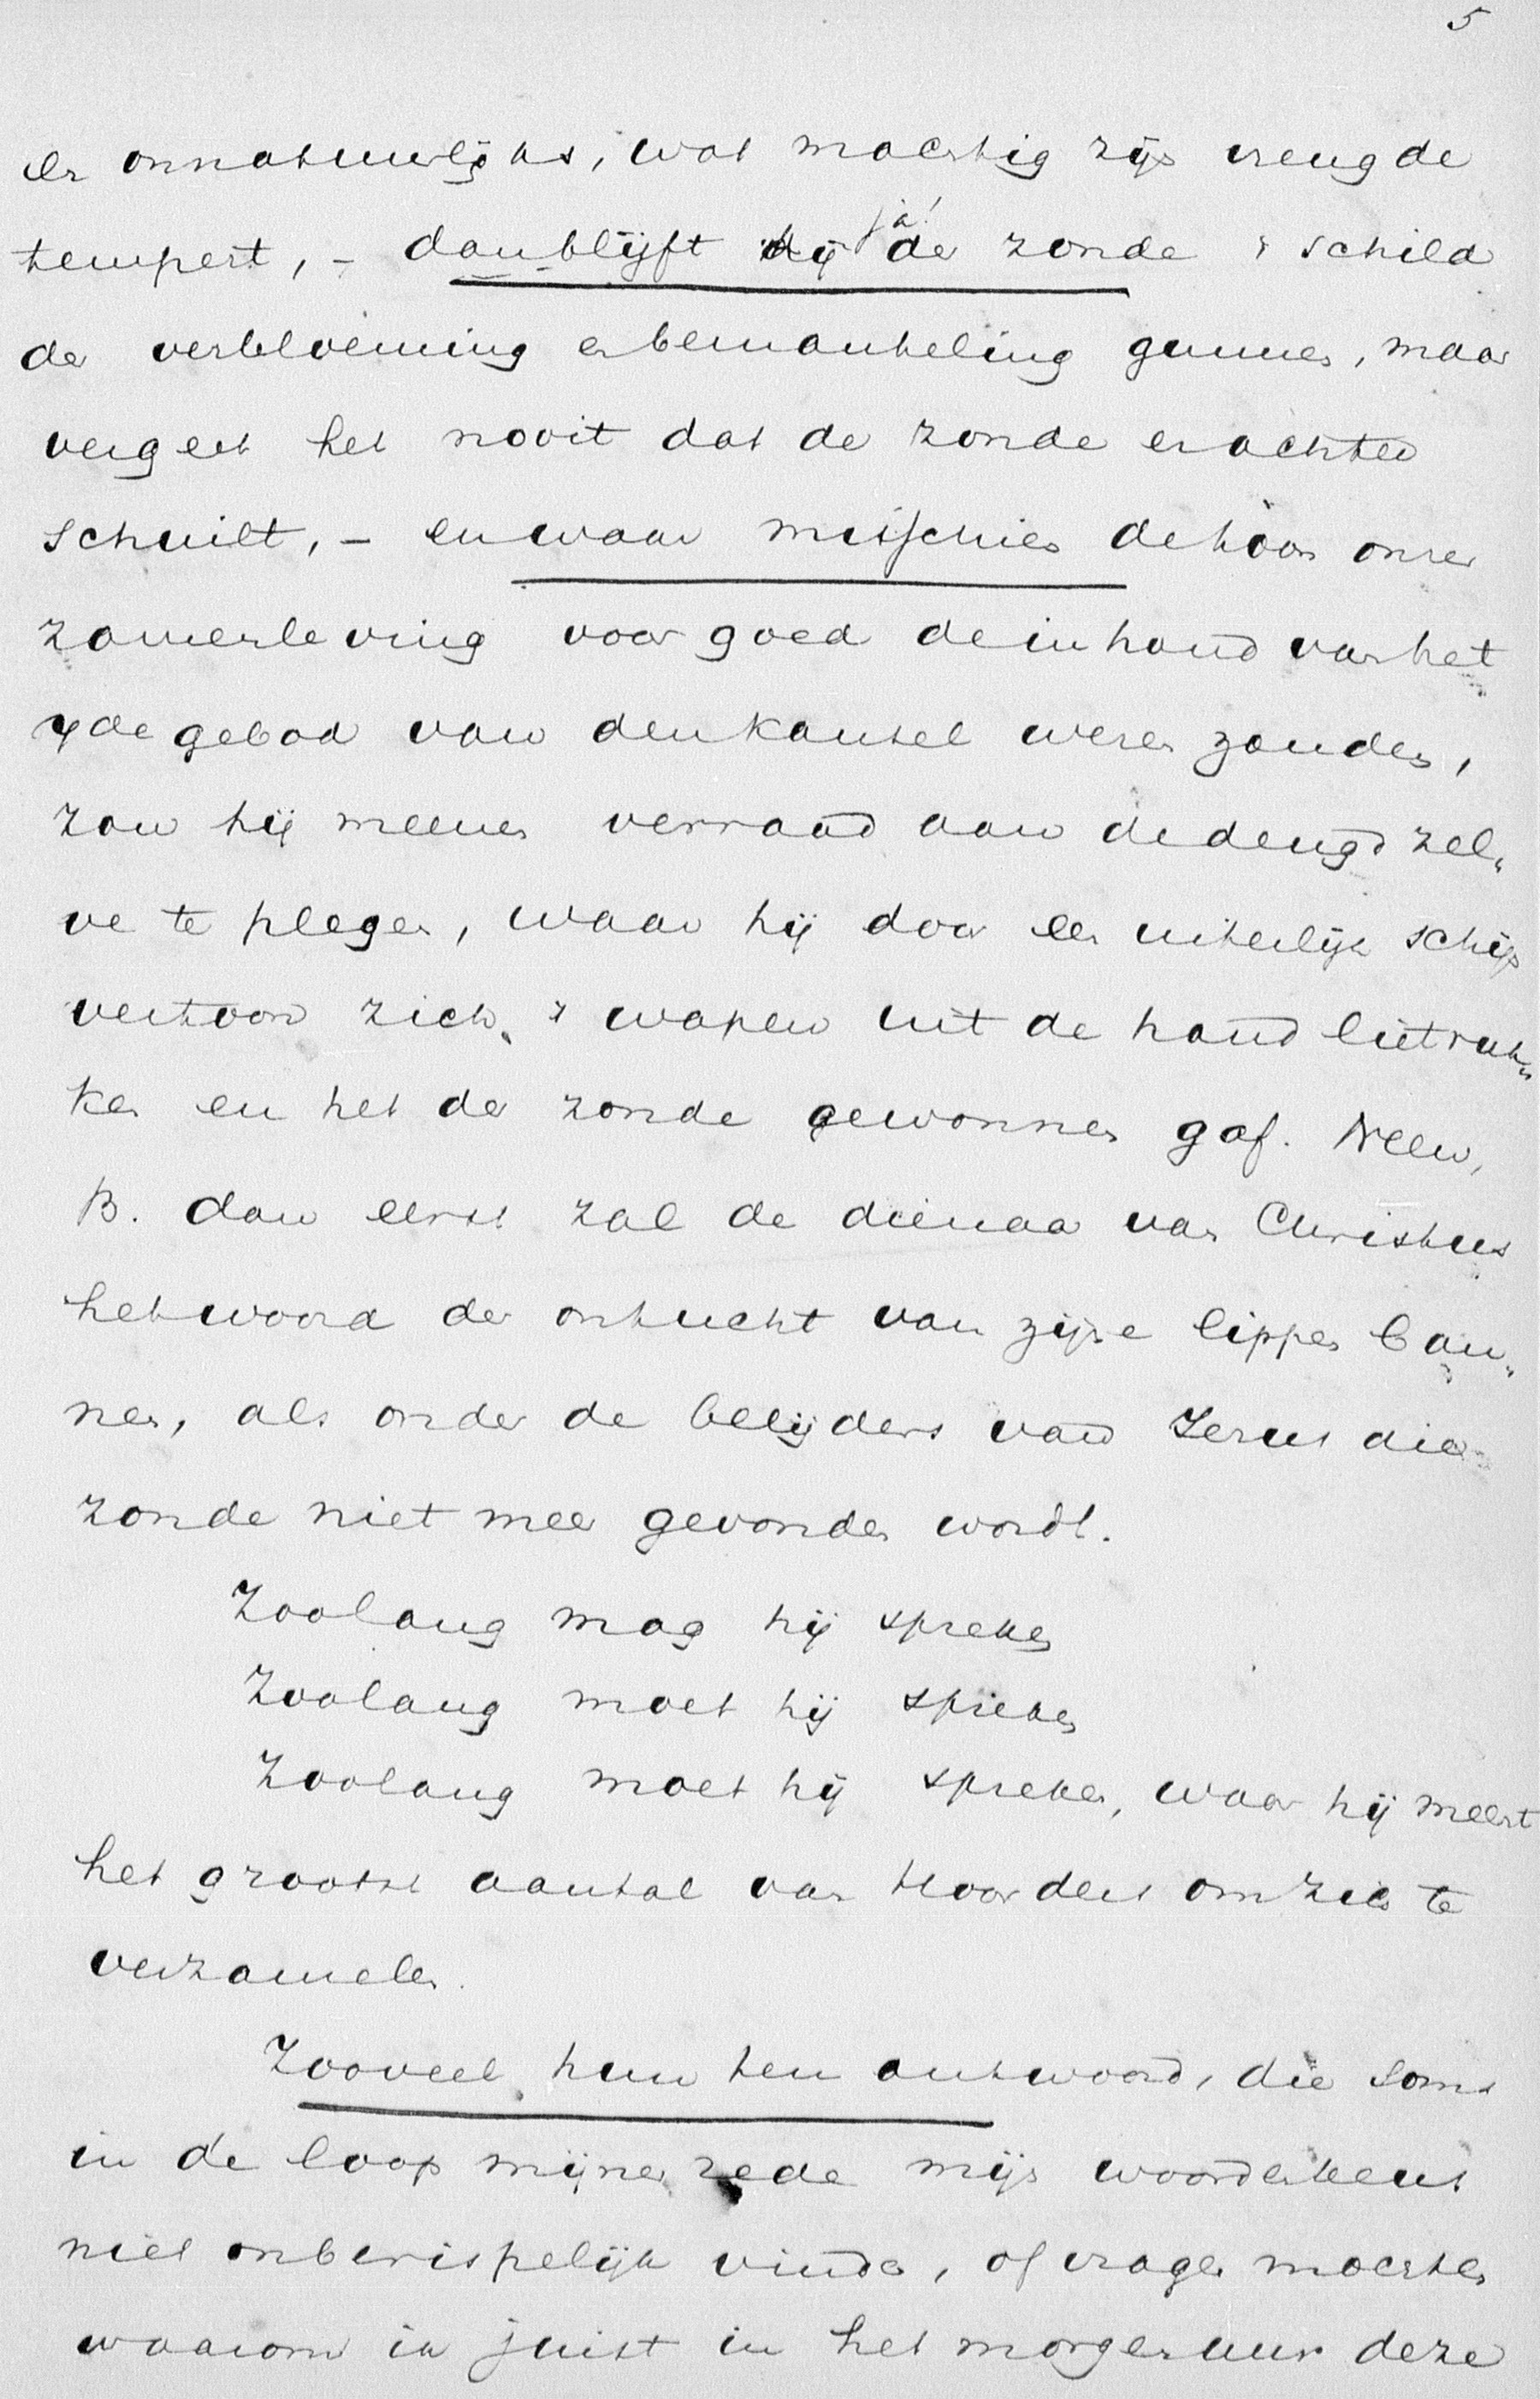 5
en onnatuurlijks, wat machtig zijn vreugde
tempert, - dan blijft hij ja! de zonde 't schild
der verbloeming en bemanteling gunnen, maar
vergeet het nooit dat de zonde er achter
schuilt, - en waar misschien de toon onzer
zamenleving voor goed de inhoud van het
7de gebod van den kansel weren zouden,
zou hij meenen verraad aan de deugd zel„
ve te plegen, waar hij door een uiterlijk schijn
vertoon zich 't wapen uit de hand liet ruk„
ken en het der zonde gewonnen gaf. Neen,
B. dan eerst zal de dienaar van Christus
het woord der ontucht van zijne lippen ban„
nen, als onder de belijders van Jezus die
zonde niet meer gevonden wordt.
Zoolang mag hij spreken
Zoolang moet hij spreken
Zoolang moet hij spreken, waar hij meent
het grootst aantal van Hoorders om zich te
verzamelen.
Zooveel hun ten antwoord, die soms
in de loop mijner rede mijn woordenkeus
niet onberispelijk vinden, of vragen mochten
waarom ik juist in het morgenuur deze